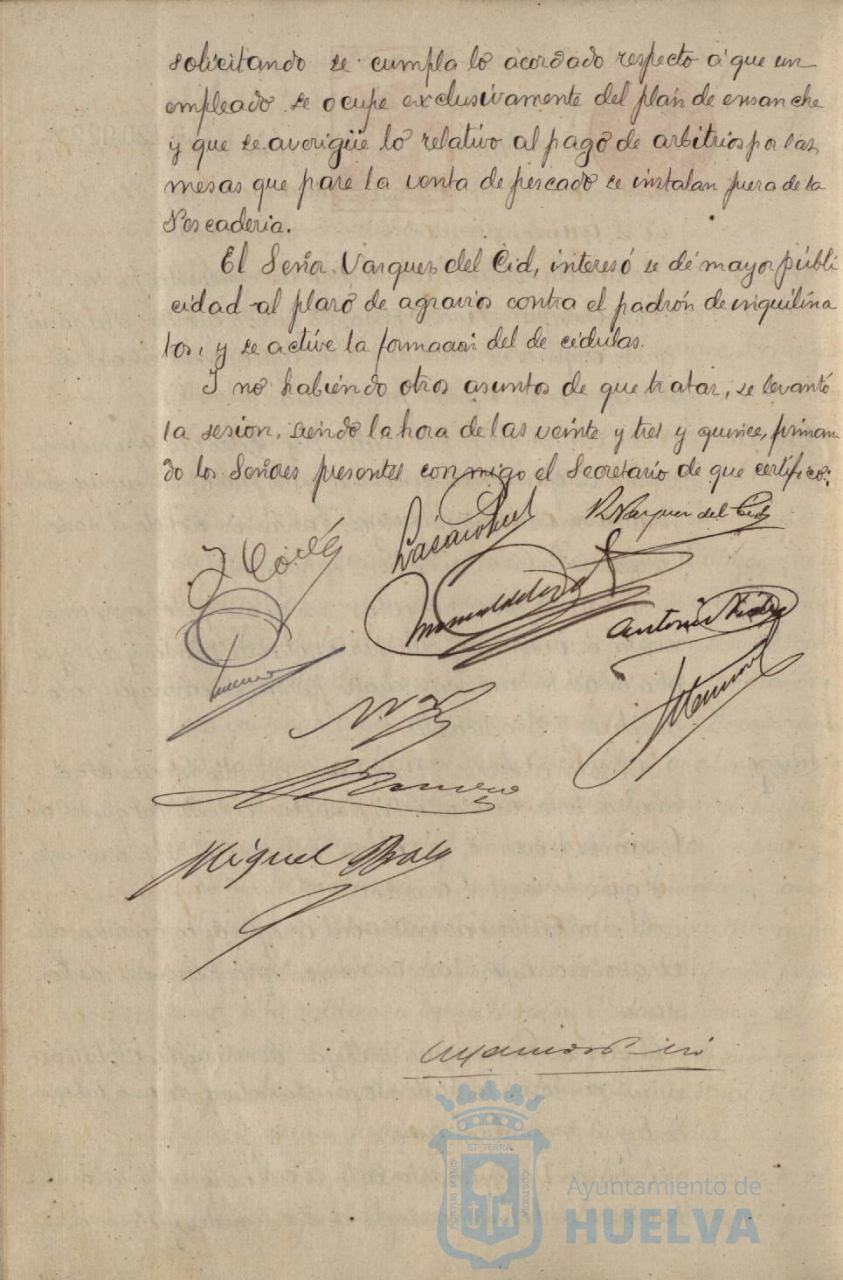 solicitando se cumpla lo acordado respecto á que un
empleado se ocupe exclusivamente del plán de ensanche
y que se averigüe lo relativo al pago de arbitrios por las
mesas que para la venta de pescado se instalan fuera de la
Pescaderia.
El Señor Vazquez del Cid, interesó se dé mayor públi
cidad al plazo de agravios contra el padrón de inquilina
tos, y se active la formación del de cédulas.
Y no habiendo otros asuntos de que tratar, se levantó
la sesion, siendo la hora de las veinte y tres y quince, firman
do los Señores presentes con migo el Secretario de que certifico:
Vazquez del Cid
Antonio
Romero
Miguel
PORTUS MARIS
ET TERRÆ
CUSTODIA
Ayuntamiento de
HUELVA